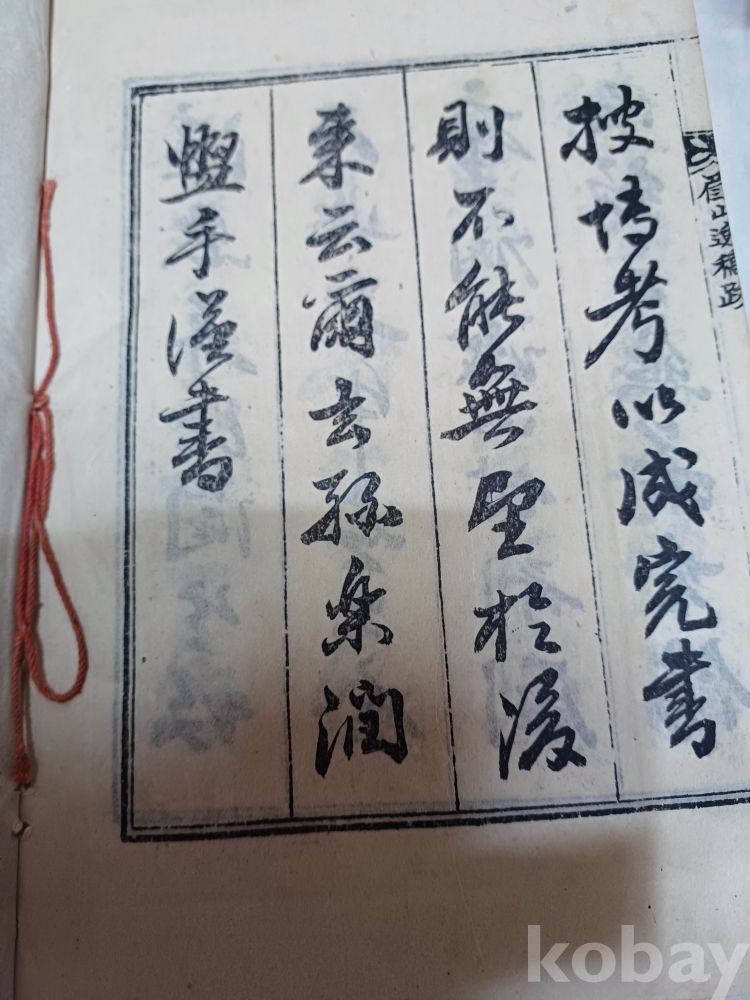 眉山遺稿跋
搜博考以成完書
則不能無望於後
來云爾玄孫樂潤
盥手謹書
kobay